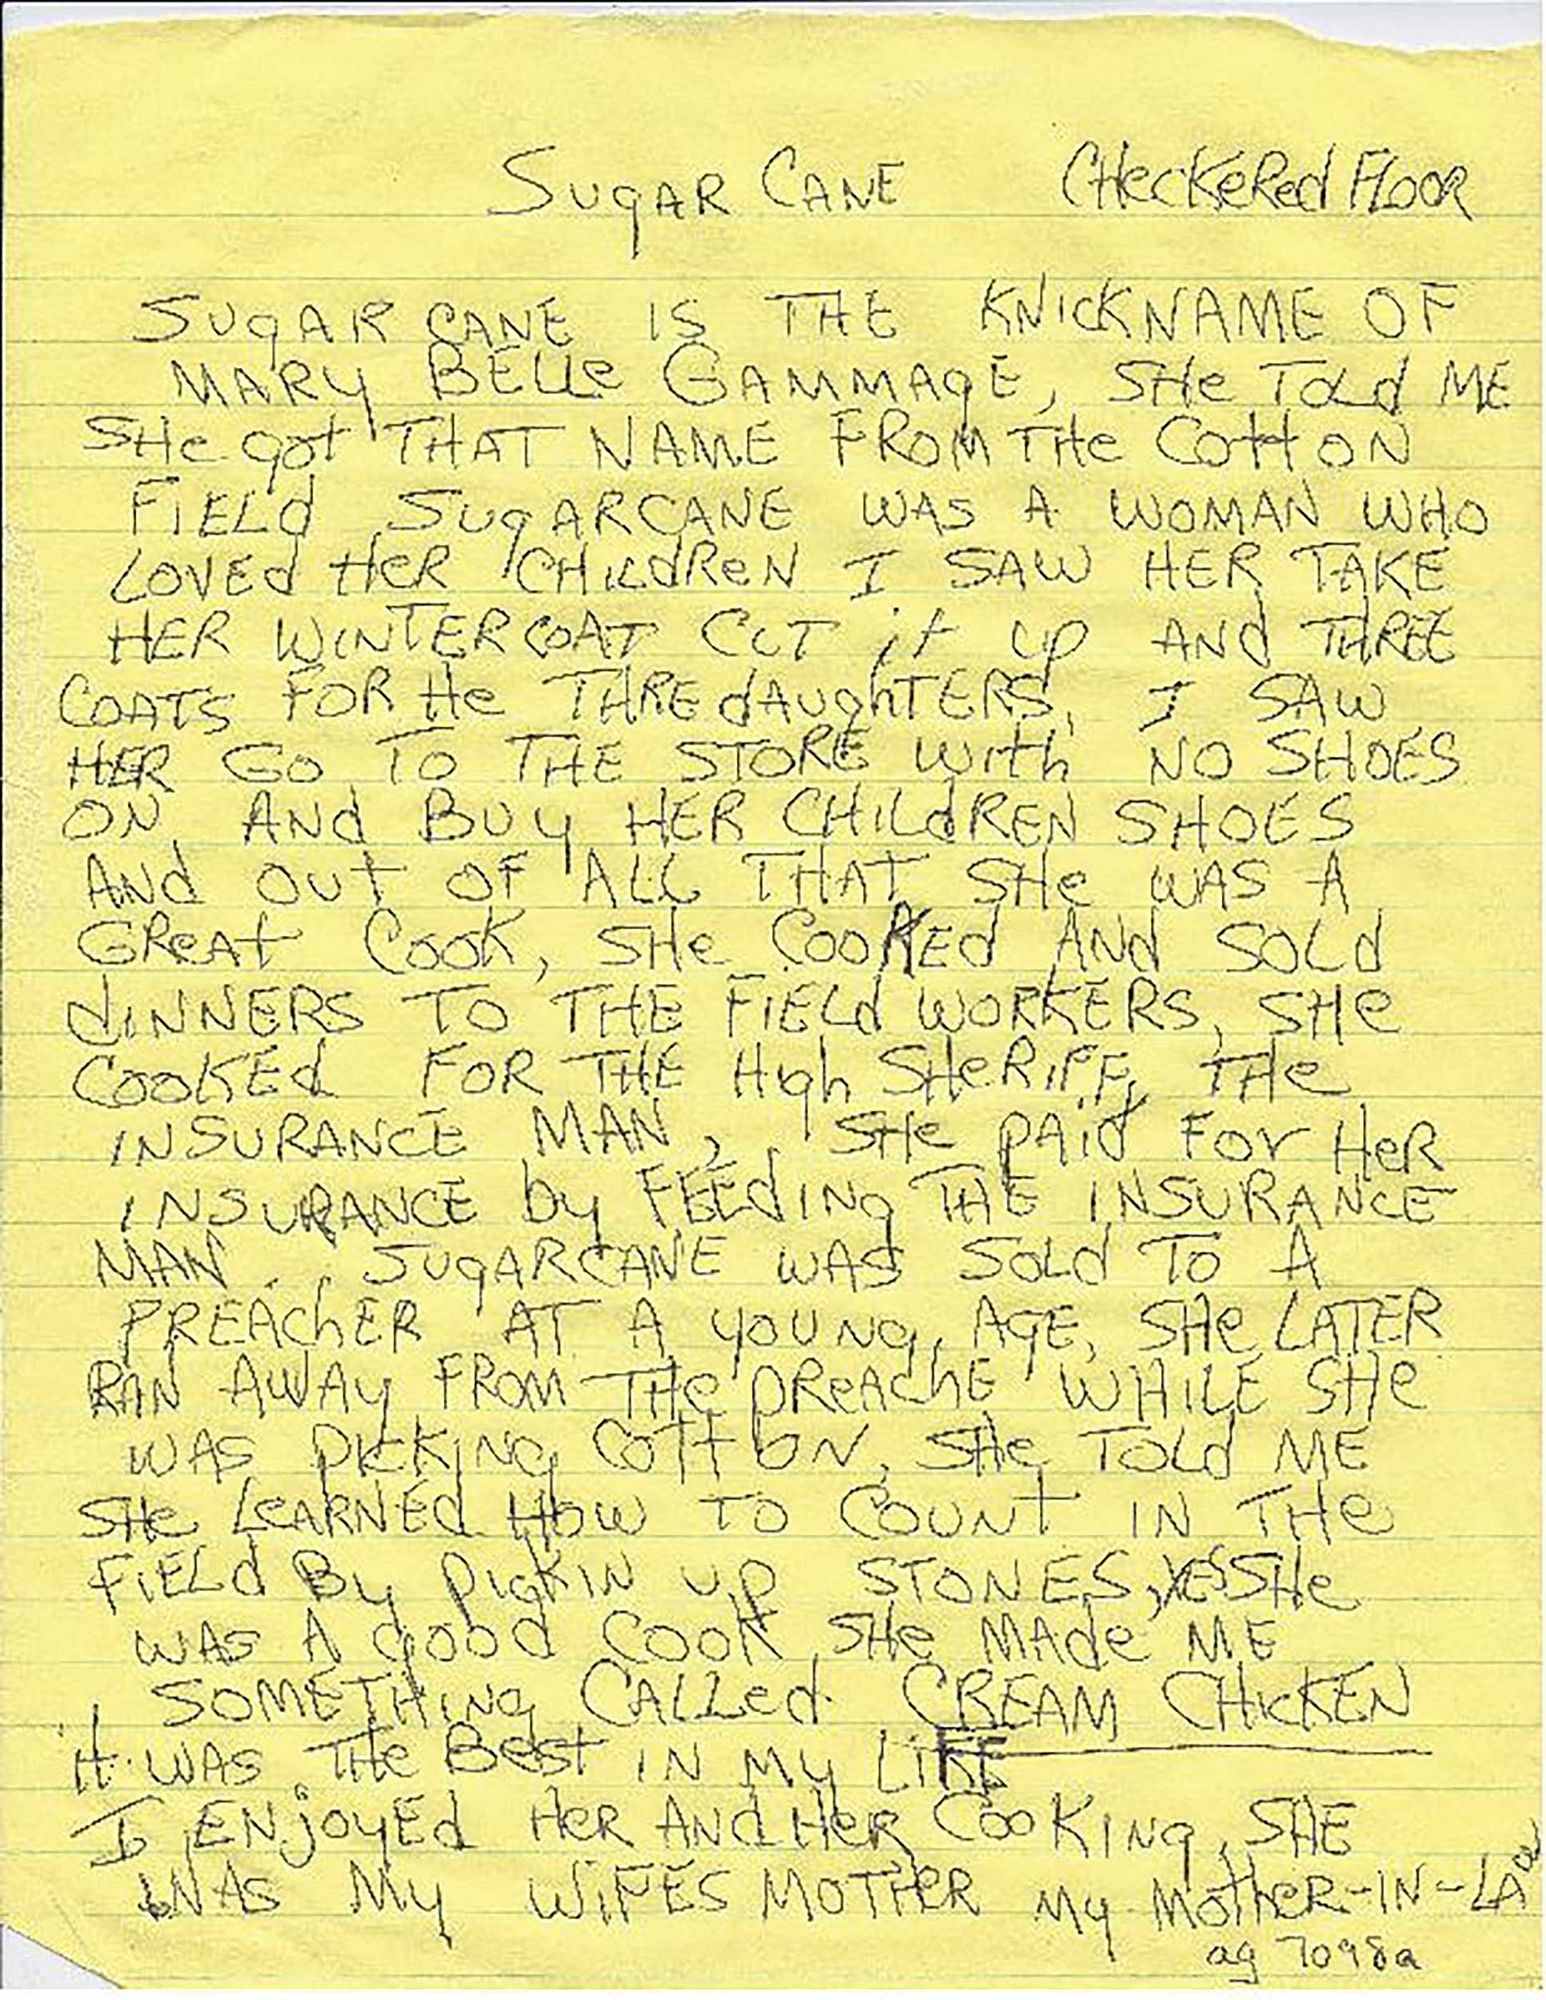 SUgAR CANE CHecKeRed FLOOR
SUgAR CANE IS THE KNICKNAME OF
MARy BELLe GAMMAgE, SHe TOLd ME
SHe got THAT NAME FROM THe COttON
FIELd SUgARCANE WAS A WOMAN WHO
LOVEd HeR CHILdReN I SAW HER TAKE
HER WINTERCOAT CUT it UP ANd THREE
COATS FOR He THRE dAUghTERS, I SAW
HER GO TO THE STORE With NO SHOES
ON ANd BUy HER CHILdREN SHOES
ANd OUt OF ALL THAT SHe WAS A
GReAt COOK, SHe COOKEd ANd SOLd
dINNERS TO THE FIELd WORKERS, SHe
COOKEd FOR THE HIgh SHeRIFF, THe
INSURANCE MAN, SHe PAid FOr HeR
INSURANCE by FEEdINg THE INSURANCE
MAN. SUgARCANE WAS SOLd TO A
PREAChER AT A yOUNg, AGE, SHe LATER
RAN AWAy FROM THe PReAchE WHILE SHe
WAS PICKINg COTtON, SHe TOLd ME
SHe LeARNEd HOW TO COUNt IN THe
FIELd By PICKIN UP STONES, YES SHe
WAS A gOOd COOK SHe MAde ME
SOMETHINg CALLed CREAM CHICKEN
it WAS THe BeSt IN My LIFE
I ENjOyEd HeR ANd HeR COOKINg, SHE
WAS My WIFES MOTHER My MOTHeR-IN-LAw
ag 7098a